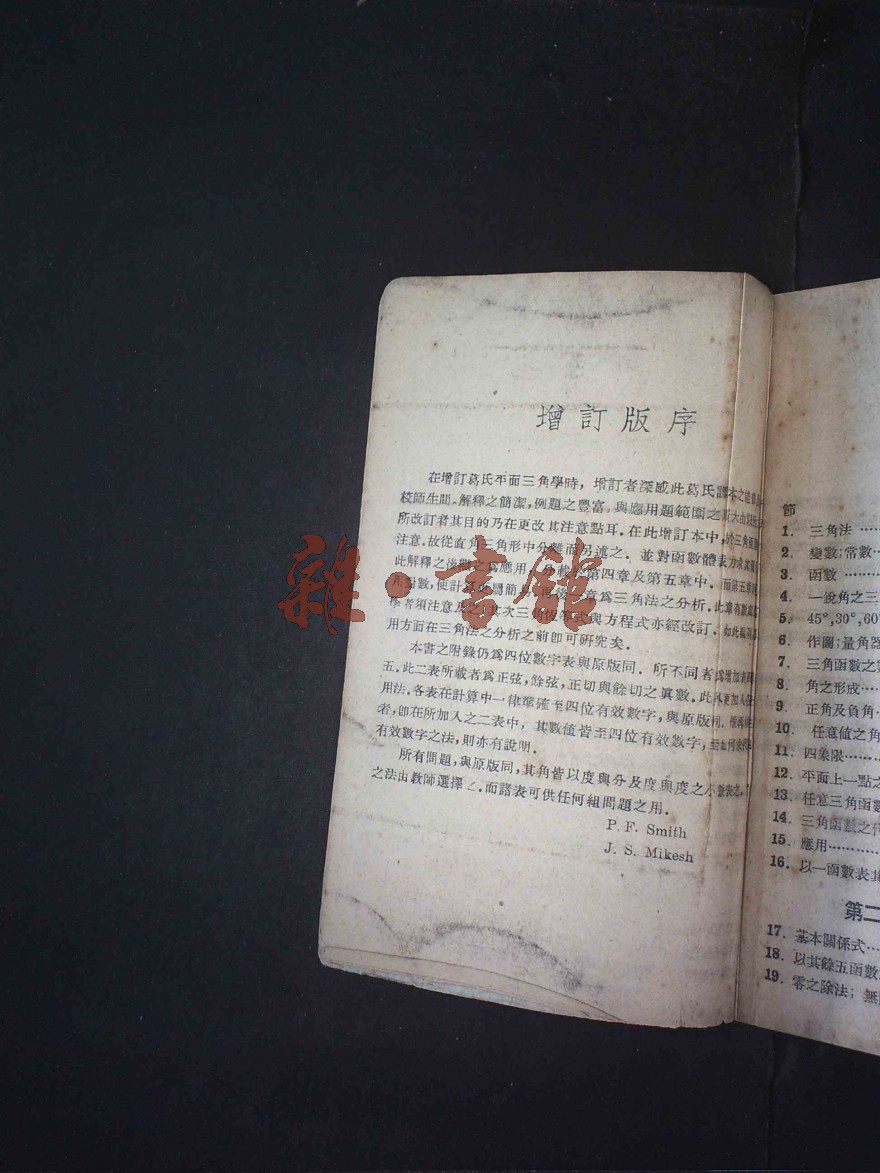 增訂版序
在增訂葛氏平面三角學時，增訂者深感此葛氏譯本之
校師生間．解釋之簡潔，例題之豐富，與應用題範圍之
所改訂者其目的乃在更改其注意點耳．在此增訂本中，
注意．故從直角三角形中分離而另述之．並對函數體
此解釋之後
第四章及第五章中．
用對數，使計
為三角法之分析．此章
學者須注意及
其次三角恆等式與方程式亦經改訂．如此
用方面在三角法之分析之前卽可研究矣．
本書之附錄仍爲四位數字表與原版同．所不同者爲增加
五．此二表所載者爲正弦，餘弦，正切與餘切之眞數．此外更加入
用法．各表在計算中一律準確至四位有效數字，與原版同．
者，卽在所加入之二表中，其數值皆至四位有效數字，至如何
有效數字之法，則亦有說明．
所有問題，與原版同，其角皆以度與分及度與度之小數表之，
之法由敎師選擇之．而諸表可供任何組問題之用．
P. F. Smith
J. S. Mikesh
節
1. 三角法
2. 變數；常數
3. 函數
4. 一銳角之三
5. 45°,30°,60
6. 作圖；量角器
7. 三角函數之
8. 角之形成
9. 正角及負角
10. 任意値之角
11. 四象限
12. 平面上一點之
13. 任意三角函數
14. 三角函數之
15. 應用
16. 以一函數表其
第二
17. 基本關係式
18. 以其餘五函數
19. 零之除法；無
雜·書館